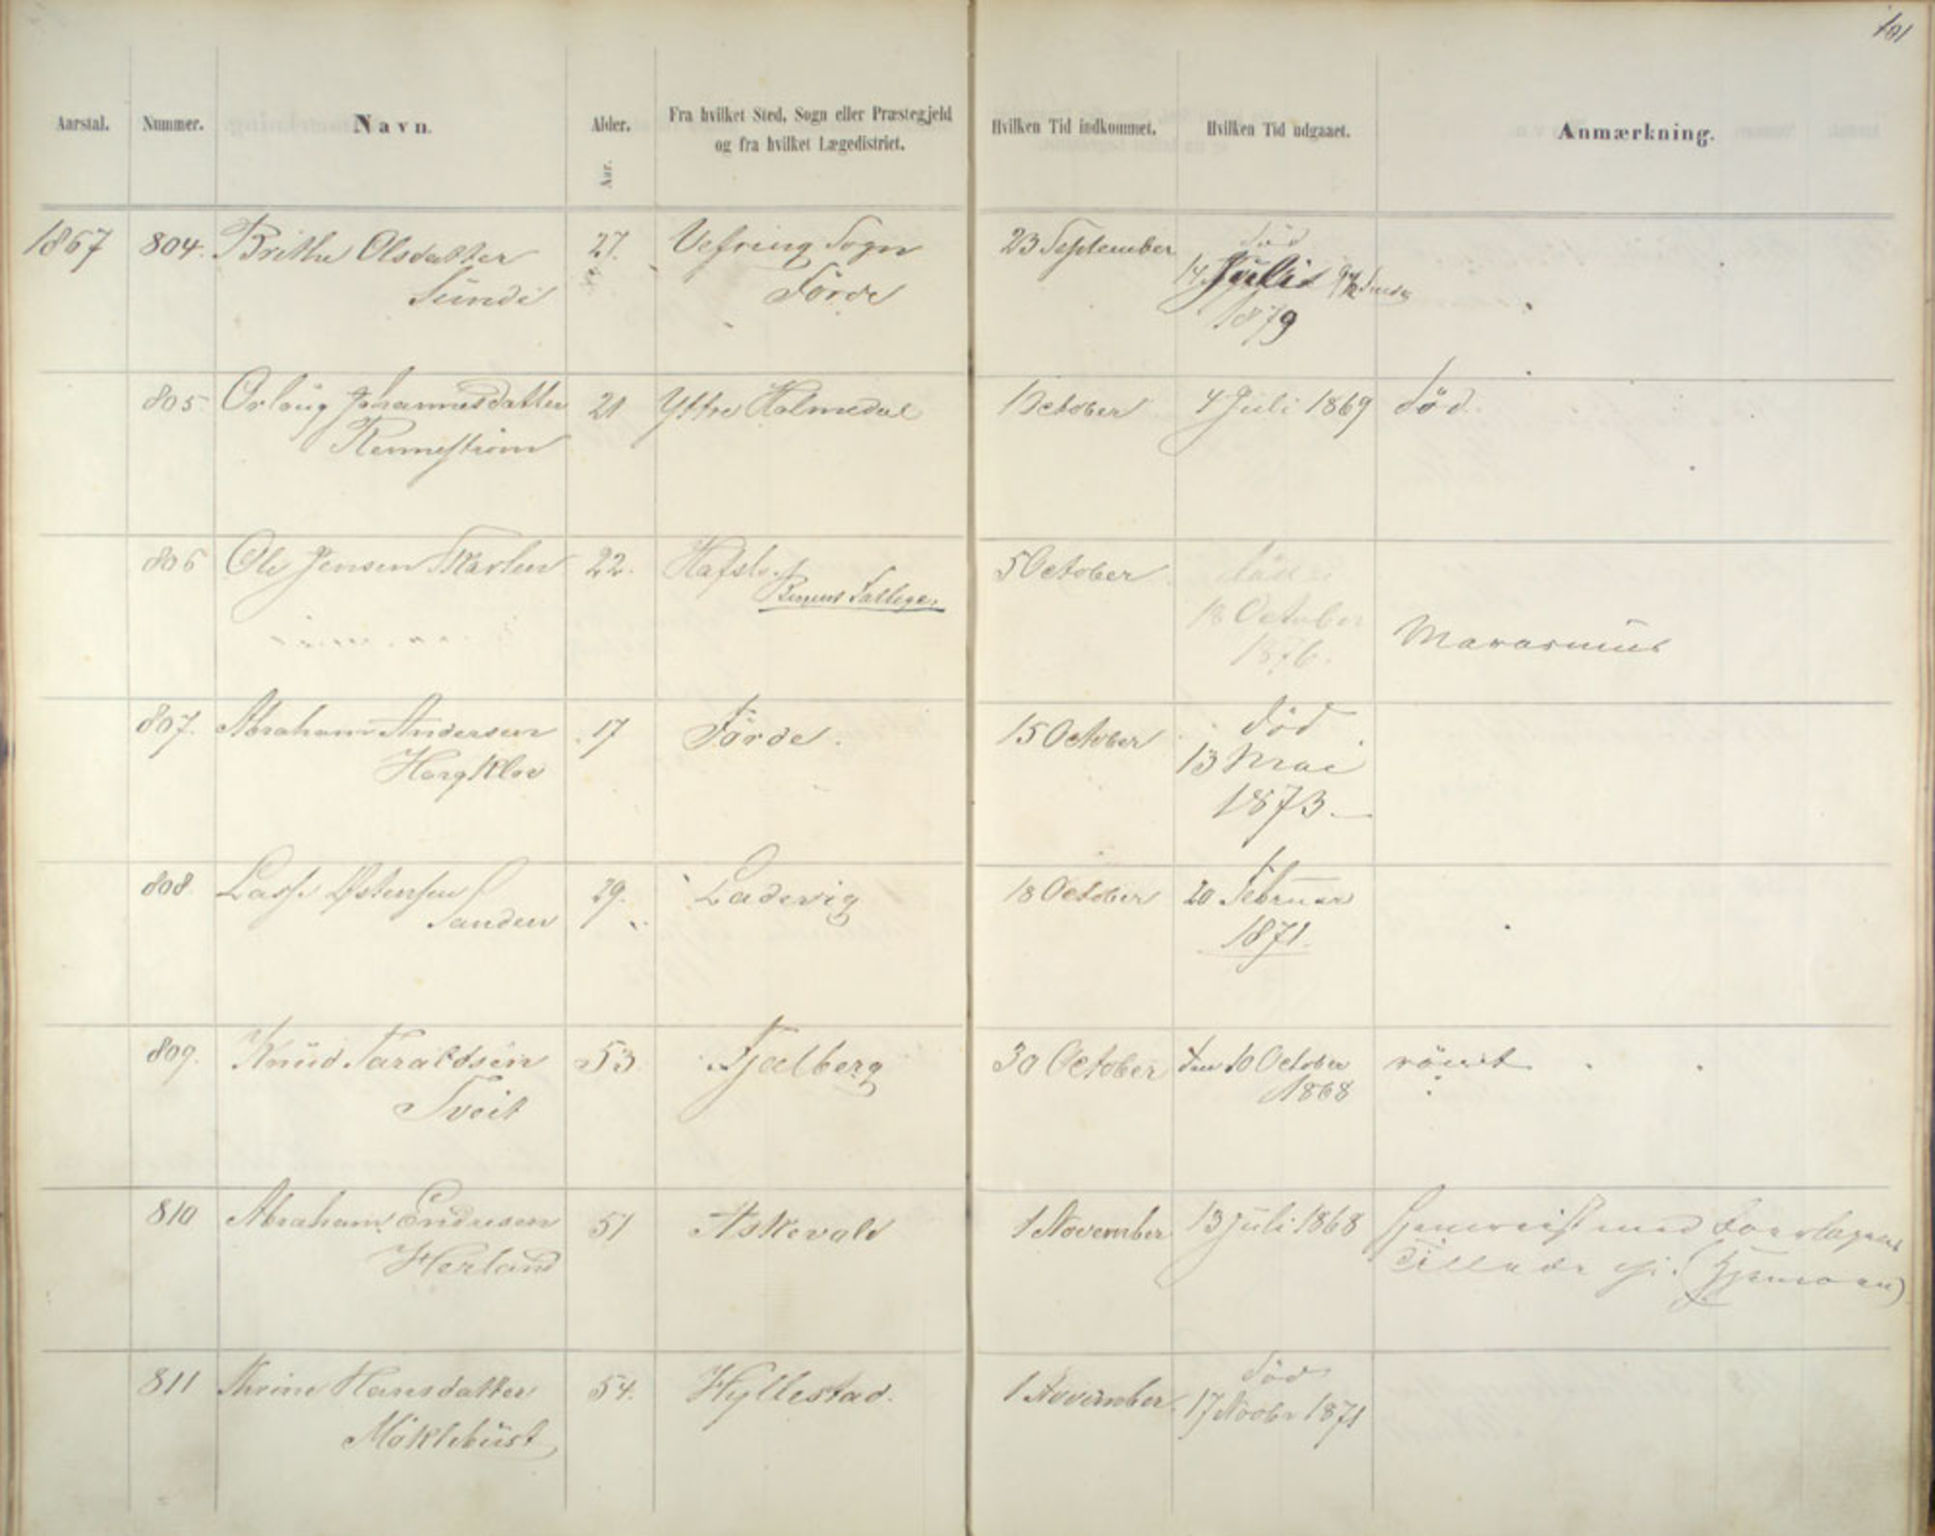 101
Aarstal. Nummer. Navn. Alder. Aar. Fra hvilket Sted, Sogn eller Præstegjeld
og fra hvilket Lægedistrict. Hvilken Tid indkommet. Hvilken Tid udgaaet. Anmærkning.
1867 804. Brithe Olsdatter 27. Vefring Sogn 23 September død
Sunde Förde 14 Juli
1879
805 Orloug Johannesdatter 21 Yttre Holmedal 1 October 4 Juli 1869 död.
806 Ole Jensen 22. Hafslo. 5 October död
18 October
1876. Marasmus
807. Abraham Andersen 17 Förde. 15 October död
13 Mai
1873.
808 Lasse Østensen 29. Ladevig 18 October 20 Februar
Sanden 1871.
809. Knud Taraldsen 53 Fjælberg 30 October den 10 October römt
Tveit 1868
810 Abraham Endresen 51 Askevold 1 November 13 Juli 1868 hjemreist med
Herland
811 Hansdatter 54. Hyllestad. 1 November. död
Möklebust 17 Novbr 1871